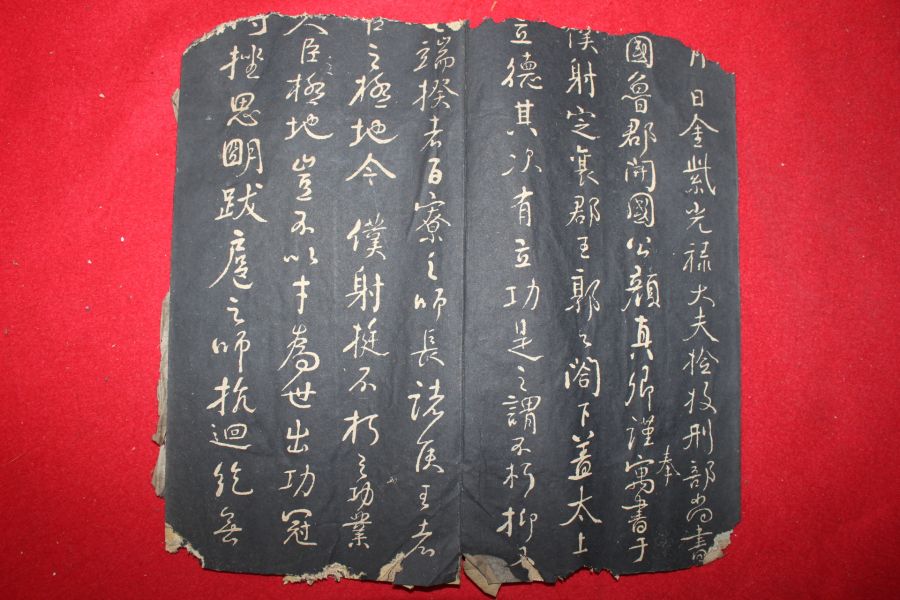 月日金紫光禄大夫檢校刑部尚書
國魯郡開國公顏真卿謹奉寓書于
僕射定襄郡王郭公閤下蓋太上
立德其次有立功是之謂不朽抑又
之端揆者百寮之師長諸侯王者
臣之極地今僕射挺不朽之功業
人臣極地豈不以才為世出功冠
時挫思明跋扈之師抗迴紇無